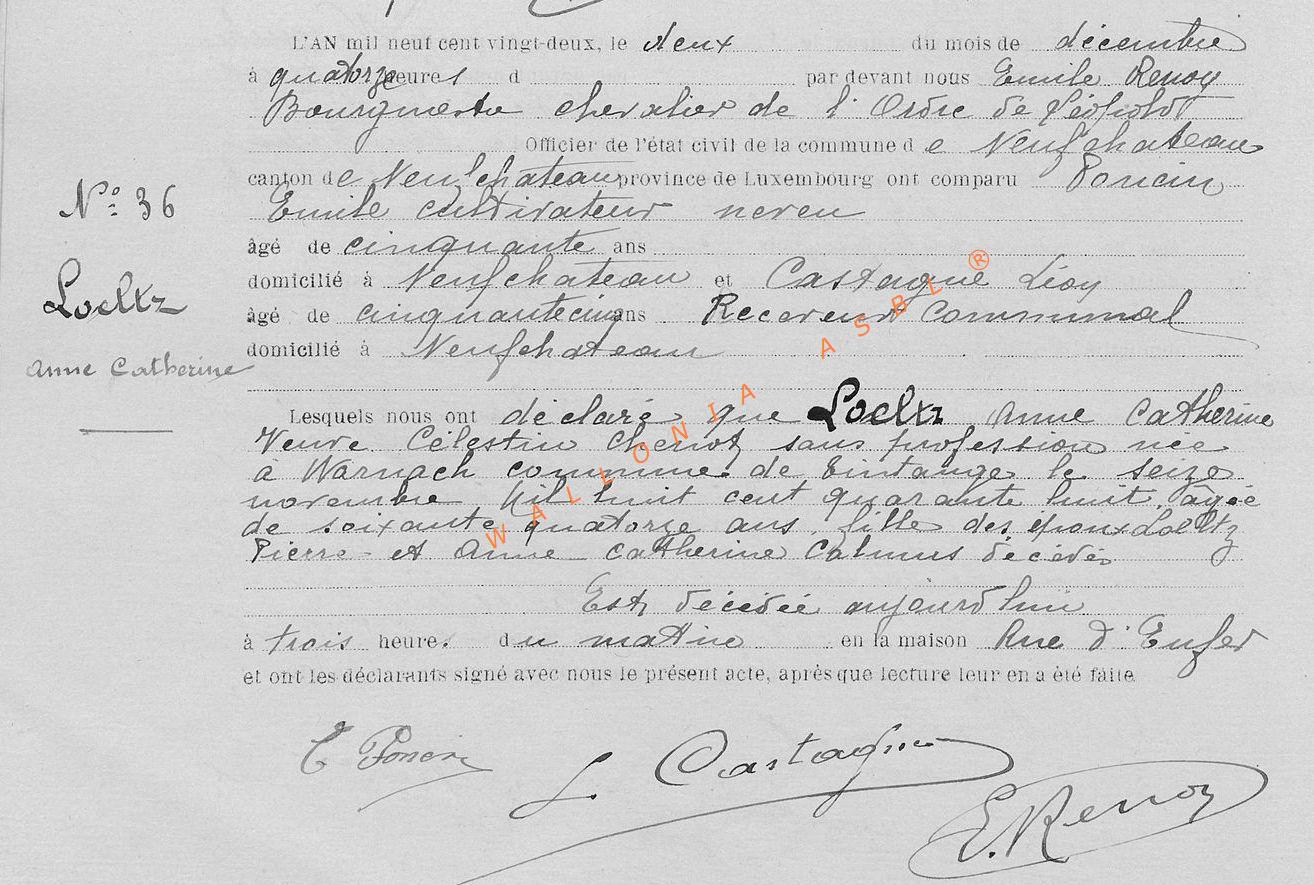 L'AN mil neuf cent vingt-deux, le deux du mois de décembre
à quatorze heures d par devant nous Emile Renoy
Bourgmestre chevalier de l'Ordre de Léopold
Officier de l'état civil de la commune de Neufchateau
canton de Neufchateau province de Luxembourg ont comparu Poncin
Emile cultivateur neveu
âgé de cinquante ans
domicilié à Neufchateau et Castagne Léon
âgé de cinquantecinq ans Receveur Communal
domicilié à Neufchateau
N° 36
Loeltz
Anne Catherine
Lesquels nous ont déclaré que Loeltz Anne Catherine
Veuve Célestin sans profession née
à Warnach commune de Tintange le seize
novembre Mil huit cent quarante huit, agée
de soixante quatorze ans, fille des époux Loeltz
Pierre et Anne Catherine Calmus décédés
Est décédée aujourd'hui
à trois heures du matin en la maison Rue d'Enfer
et ont les déclarants signé avec nous le présent acte, après que lecture leur en a été faite
E Poncin
L. Castagne
E. Renoy
WALLONIA ASBL ®